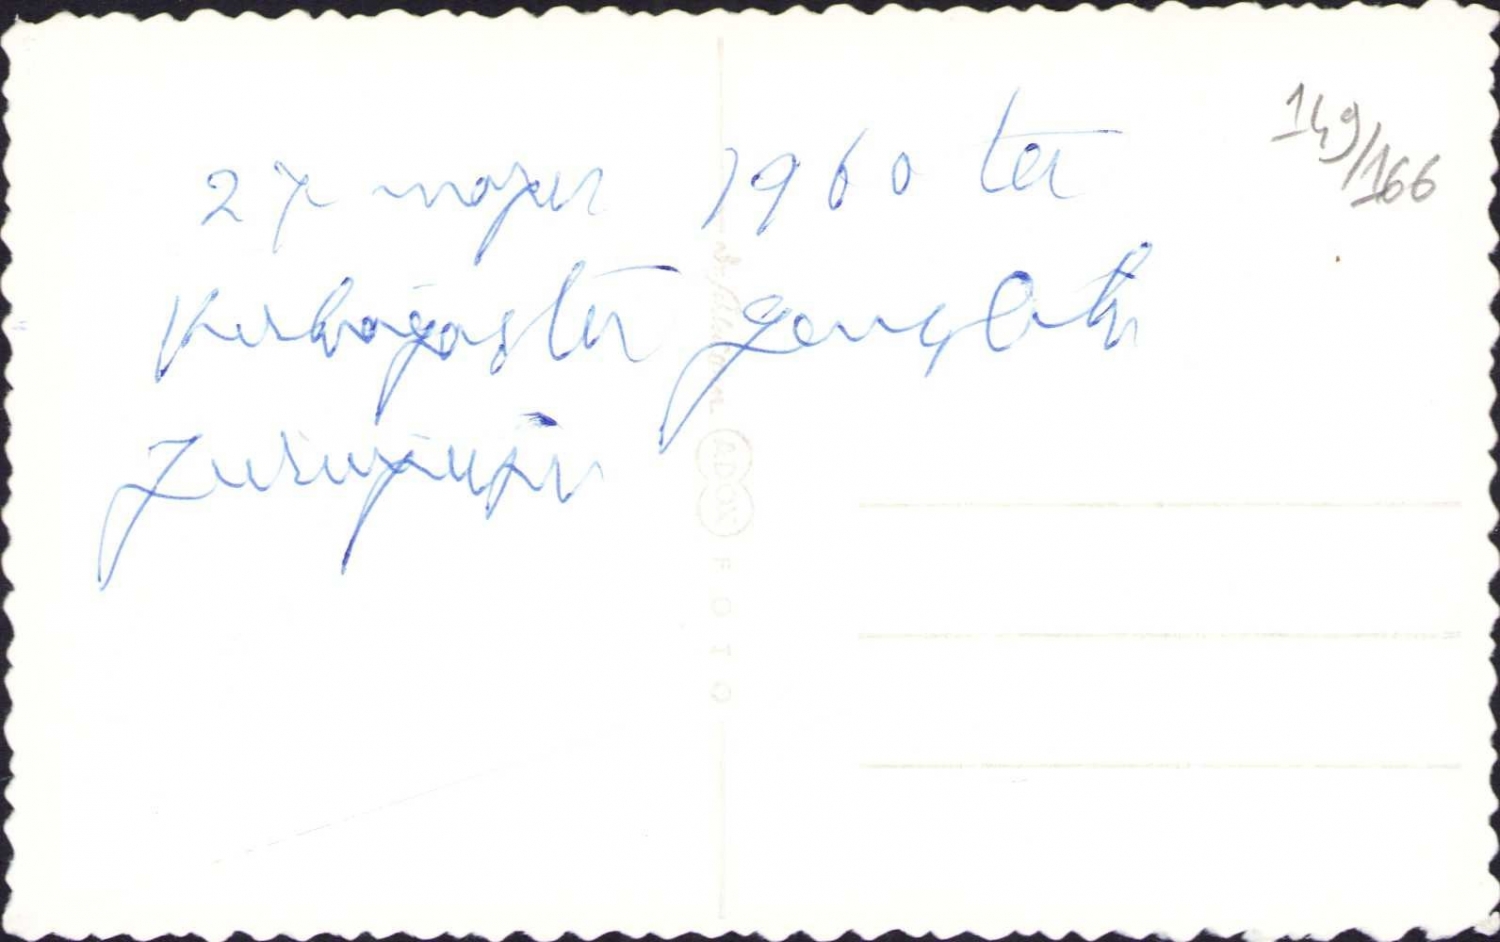 27 mayıs 1960 ta
gençlik
yürüyüşü
149/166
ADOX FOTO